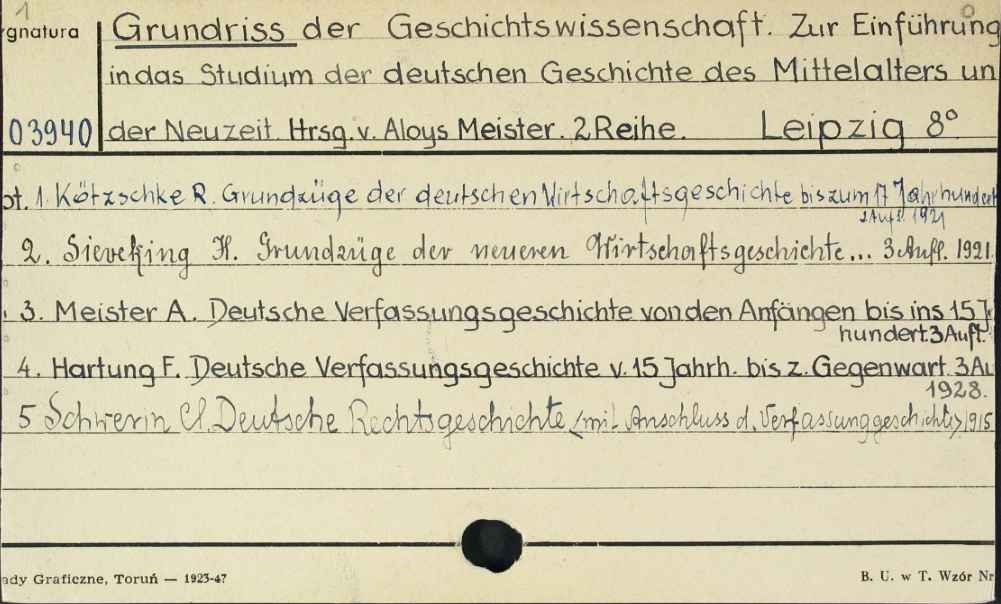 1
gnatura Grundriss der Geschichtswissenschaft. Zur Einführung
in das Studium der deutschen Geschichte des Mittelalters un
03940 der Neuzeit. Hrsg. v. Aloys Meister. 2 Reihe. Leipzig 8°
bt. 1. Kötzschke R. Grundzüge der deutschen Wirtschaftsgeschichte bis zum 17 Jahrhundert
2 Aufl. 1921
2. Sieveking H. Grundzüge der neueren Wirtschaftsgeschichte... 3 Aufl. 1921.
3. Meister A. Deutsche Verfassungsgeschichte von den Anfängen bis ins 15 J
hundert. 3 Aufl.
4. Hartung F. Deutsche Verfassungsgeschichte v. 15 Jahrh. bis z. Gegenwart. 3 Au
1928.
5 Schwerin Cl. Deutsche Rechtsgeschichte (mit Anschluss d. Verfassunggeschichte) 1915
ady Graficzne, Toruń — 1923-47 B. U. w T. Wzór Nr